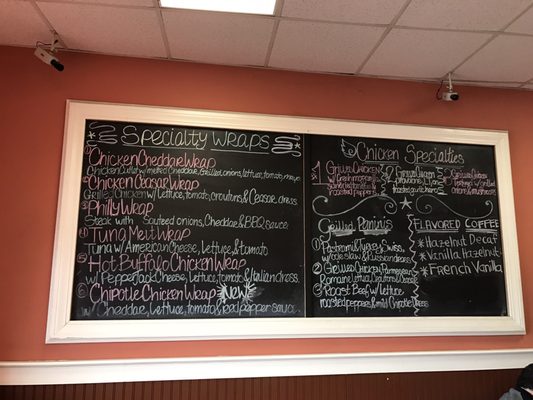 Specialty Wraps
① Chicken Cheddar Wrap
Chicken Cutlet w/ melted cheddar, Grilled onions, lettuce, tomato, mayo
② Chicken Ceasar Wrap
Grilled Chicken w/ Lettuce, tomato, croutons & Ceasar dress.
③ Philly Wrap
Steak with Sauteed onions, Cheddar & BBQ sauce
④ Tuna Melt Wrap
Tuna w/ American Cheese, Lettuce & tomato
⑤ Hot Buffalo Chicken Wrap
w/ Pepperjack Cheese, Lettuce, tomato & Italian dress.
⑥ Chipotle Chicken Wrap New
w/ Cheddar, Lettuce, Tomato & Red pepper sauce
Chicken Specialties
1 Grilled Chicken
w/ Fresh mozzarella
2 Grilled Chicken
provolone
roasted garlic
3 Grilled Chicken
onions &
Grilled Paninis
① Pastrami & Turkey, Swiss,
w/ cole slaw & Russian dress.
② Grilled Chicken, Parmesan,
Romaine Lettuce, Croutons & Ceasar
③ Roast Beef w/ Lettuce
roasted peppers & mild Chipotle
Flavored Coffee
* Hazelnut Decaf
* Vanilla Hazelnut
* French Vanilla